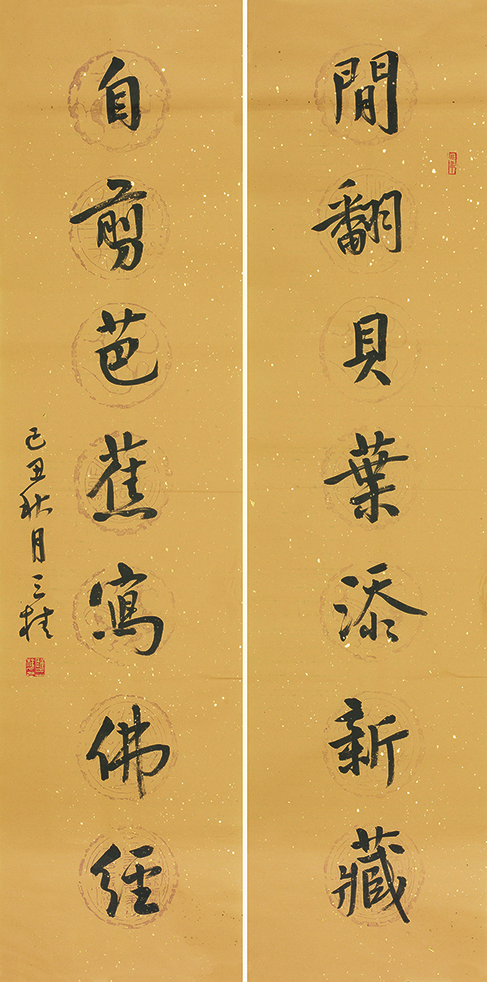 閒翻貝葉添新藏
自剪芭蕉寫佛經
己丑秋月三桂